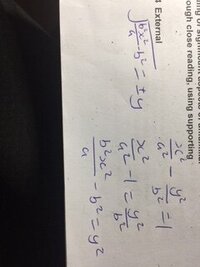 ough close reading, using supporting
External
x²/a² - y²/b² = 1
x²/a² - 1 = y²/b²
b²x²/a - b² = y²
√(b²x²/a - b²) = ±y